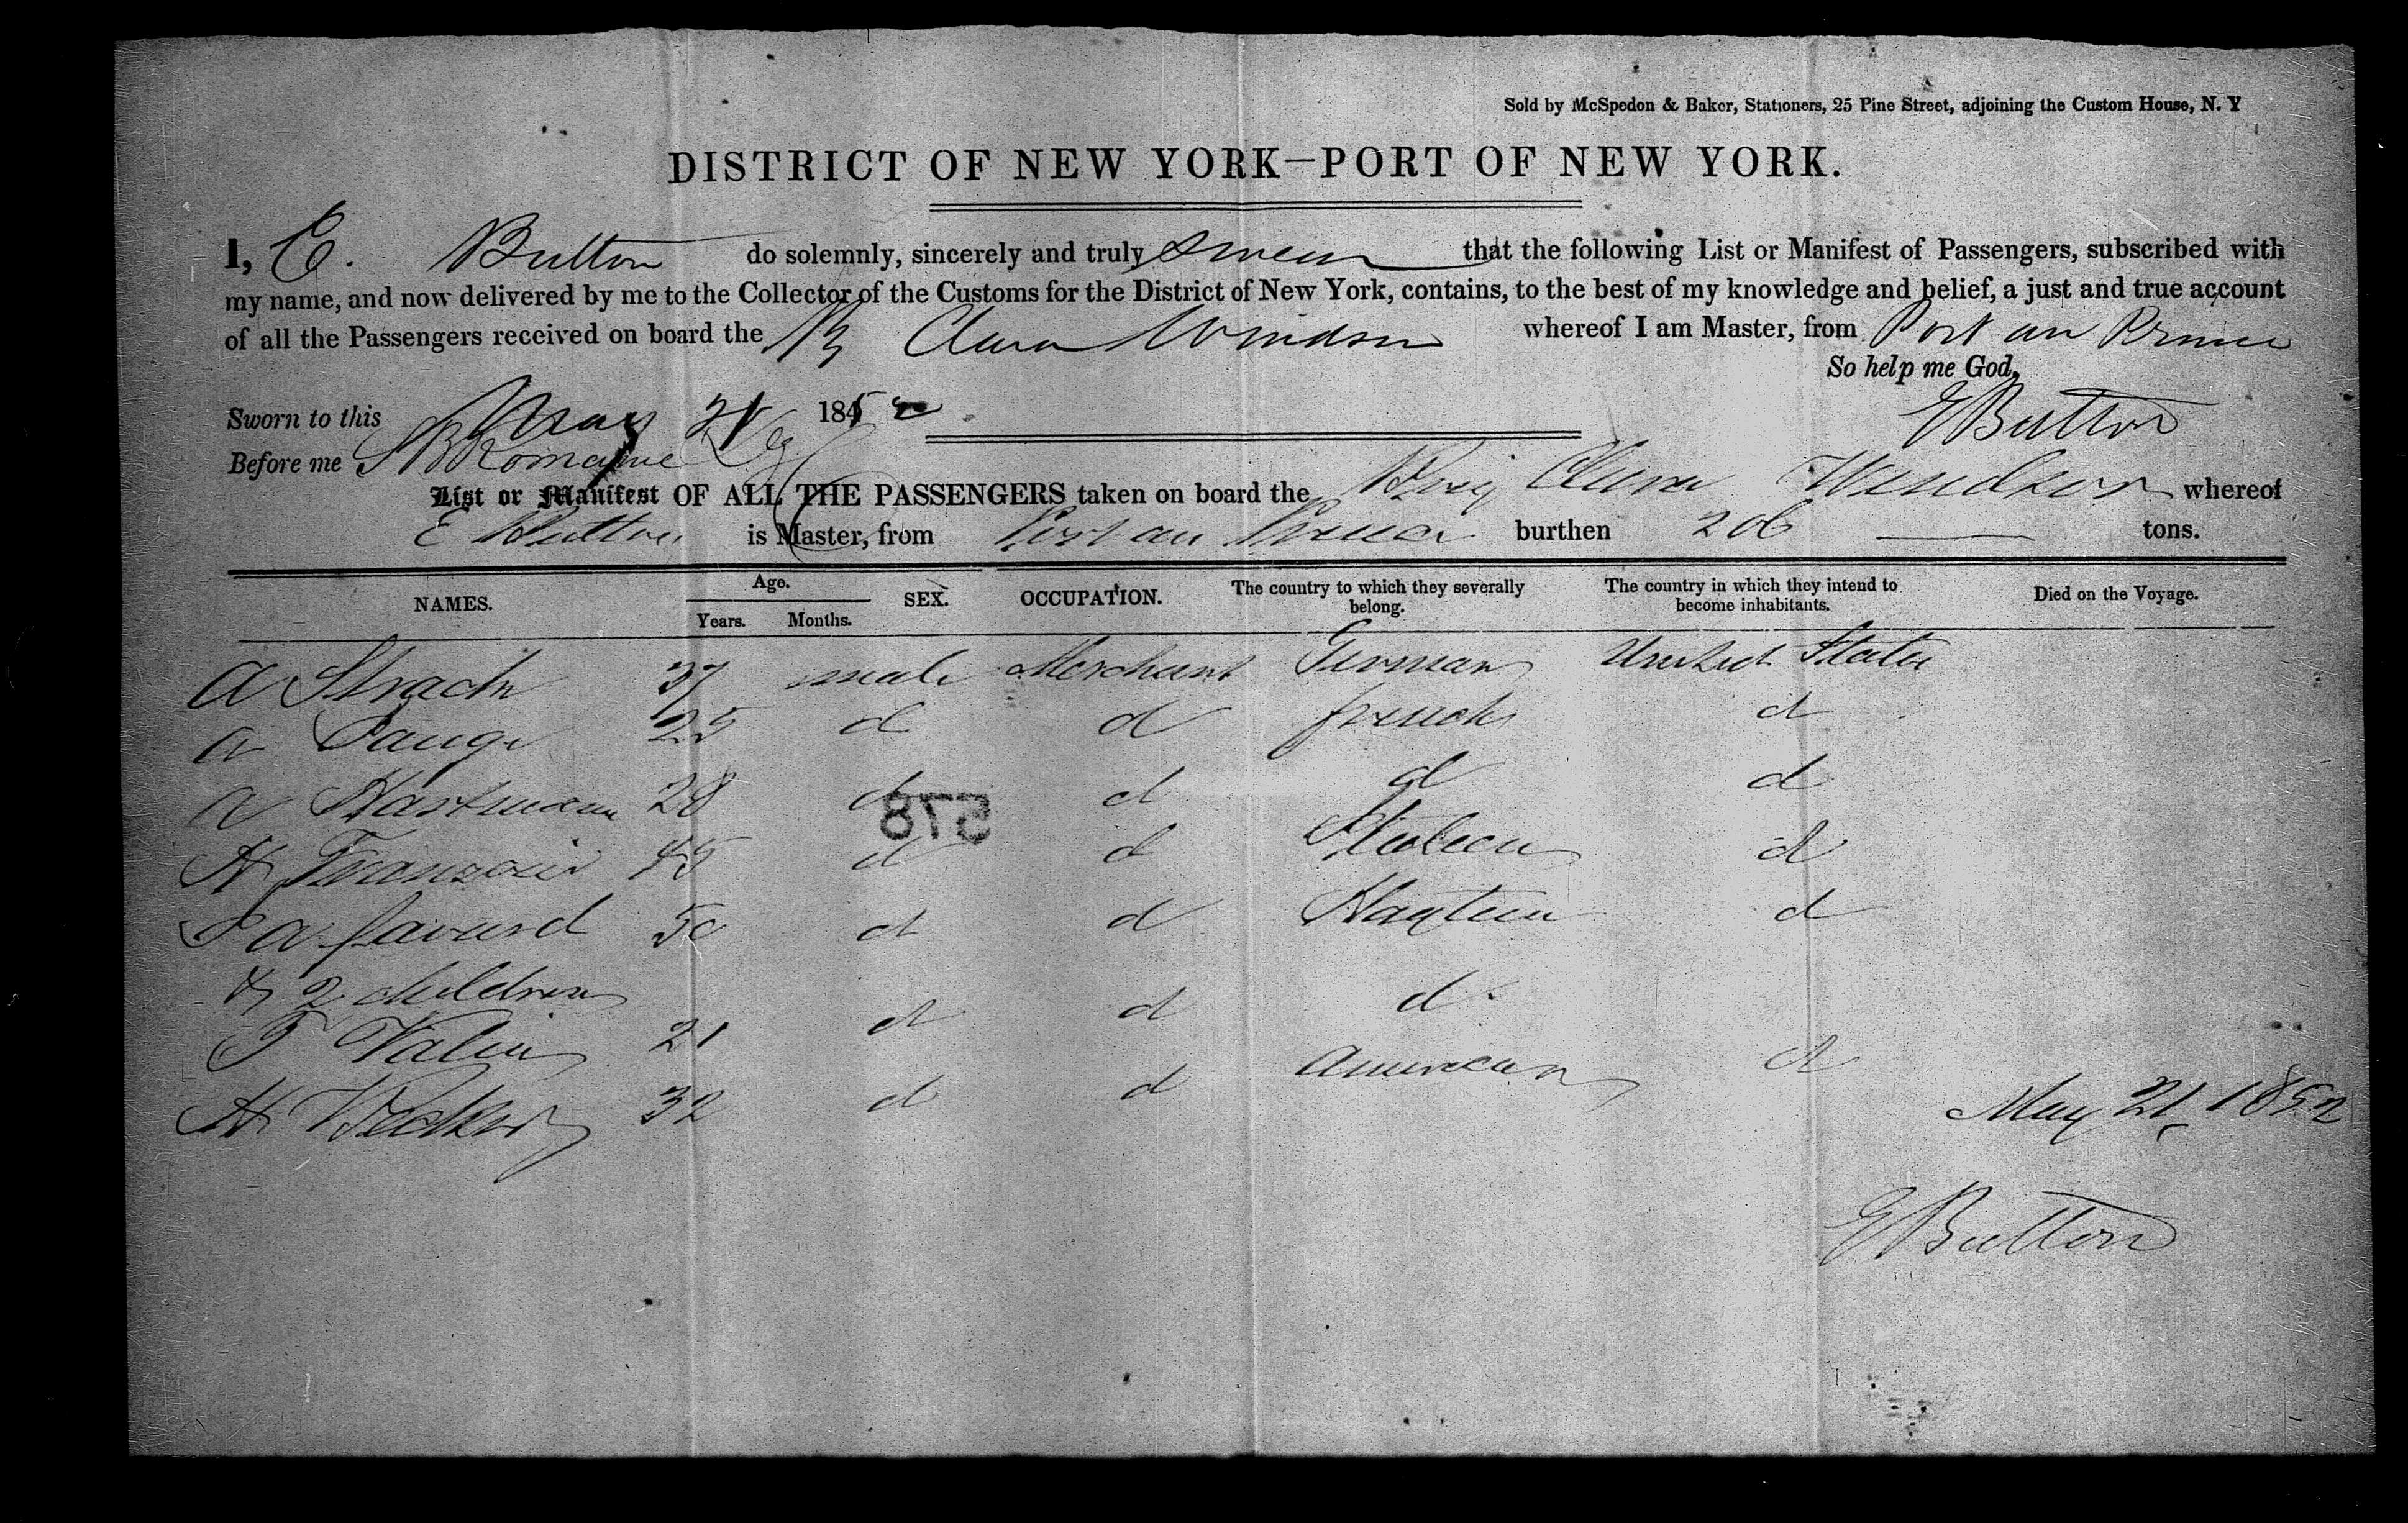 Sold by McSpedon & Baker, Stationers, 25 Pine Street, adjoining the Custom House, N. Y
DISTRICT OF NEW YORK—PORT OF NEW YORK.
I, E. Button do solemnly, sincerely and truly swear that the following List or Manifest of Passengers, subscribed with
my name, and now delivered by me to the Collector of the Customs for the District of New York, contains, to the best of my knowledge and belief, a just and true account
of all the Passengers received on board the Bg Clara Windsor whereof I am Master, from Port au Prince
So help me God,
Sworn to this May 21 1852 E Button
Before me S B Romaine
List or Manifest OF ALL THE PASSENGERS taken on board the Brig Clara Windsor whereof
E Button is Master, from Port au Prince burthen 206 tons.
NAMES. Age. Years. Months. SEX. OCCUPATION. The country to which they severally belong. The country in which they intend to become inhabitants. Died on the Voyage.
A Strachn 37 male Merchant German United States
A 25 d d french d
A Hartmann 28 d d d d
578
H 45 d d Italian d
P A favard 50 d d Haytien d
& 2 children
F Valin 21 d d d
H Becker 32 d d American d
May 21, 1852
E Button